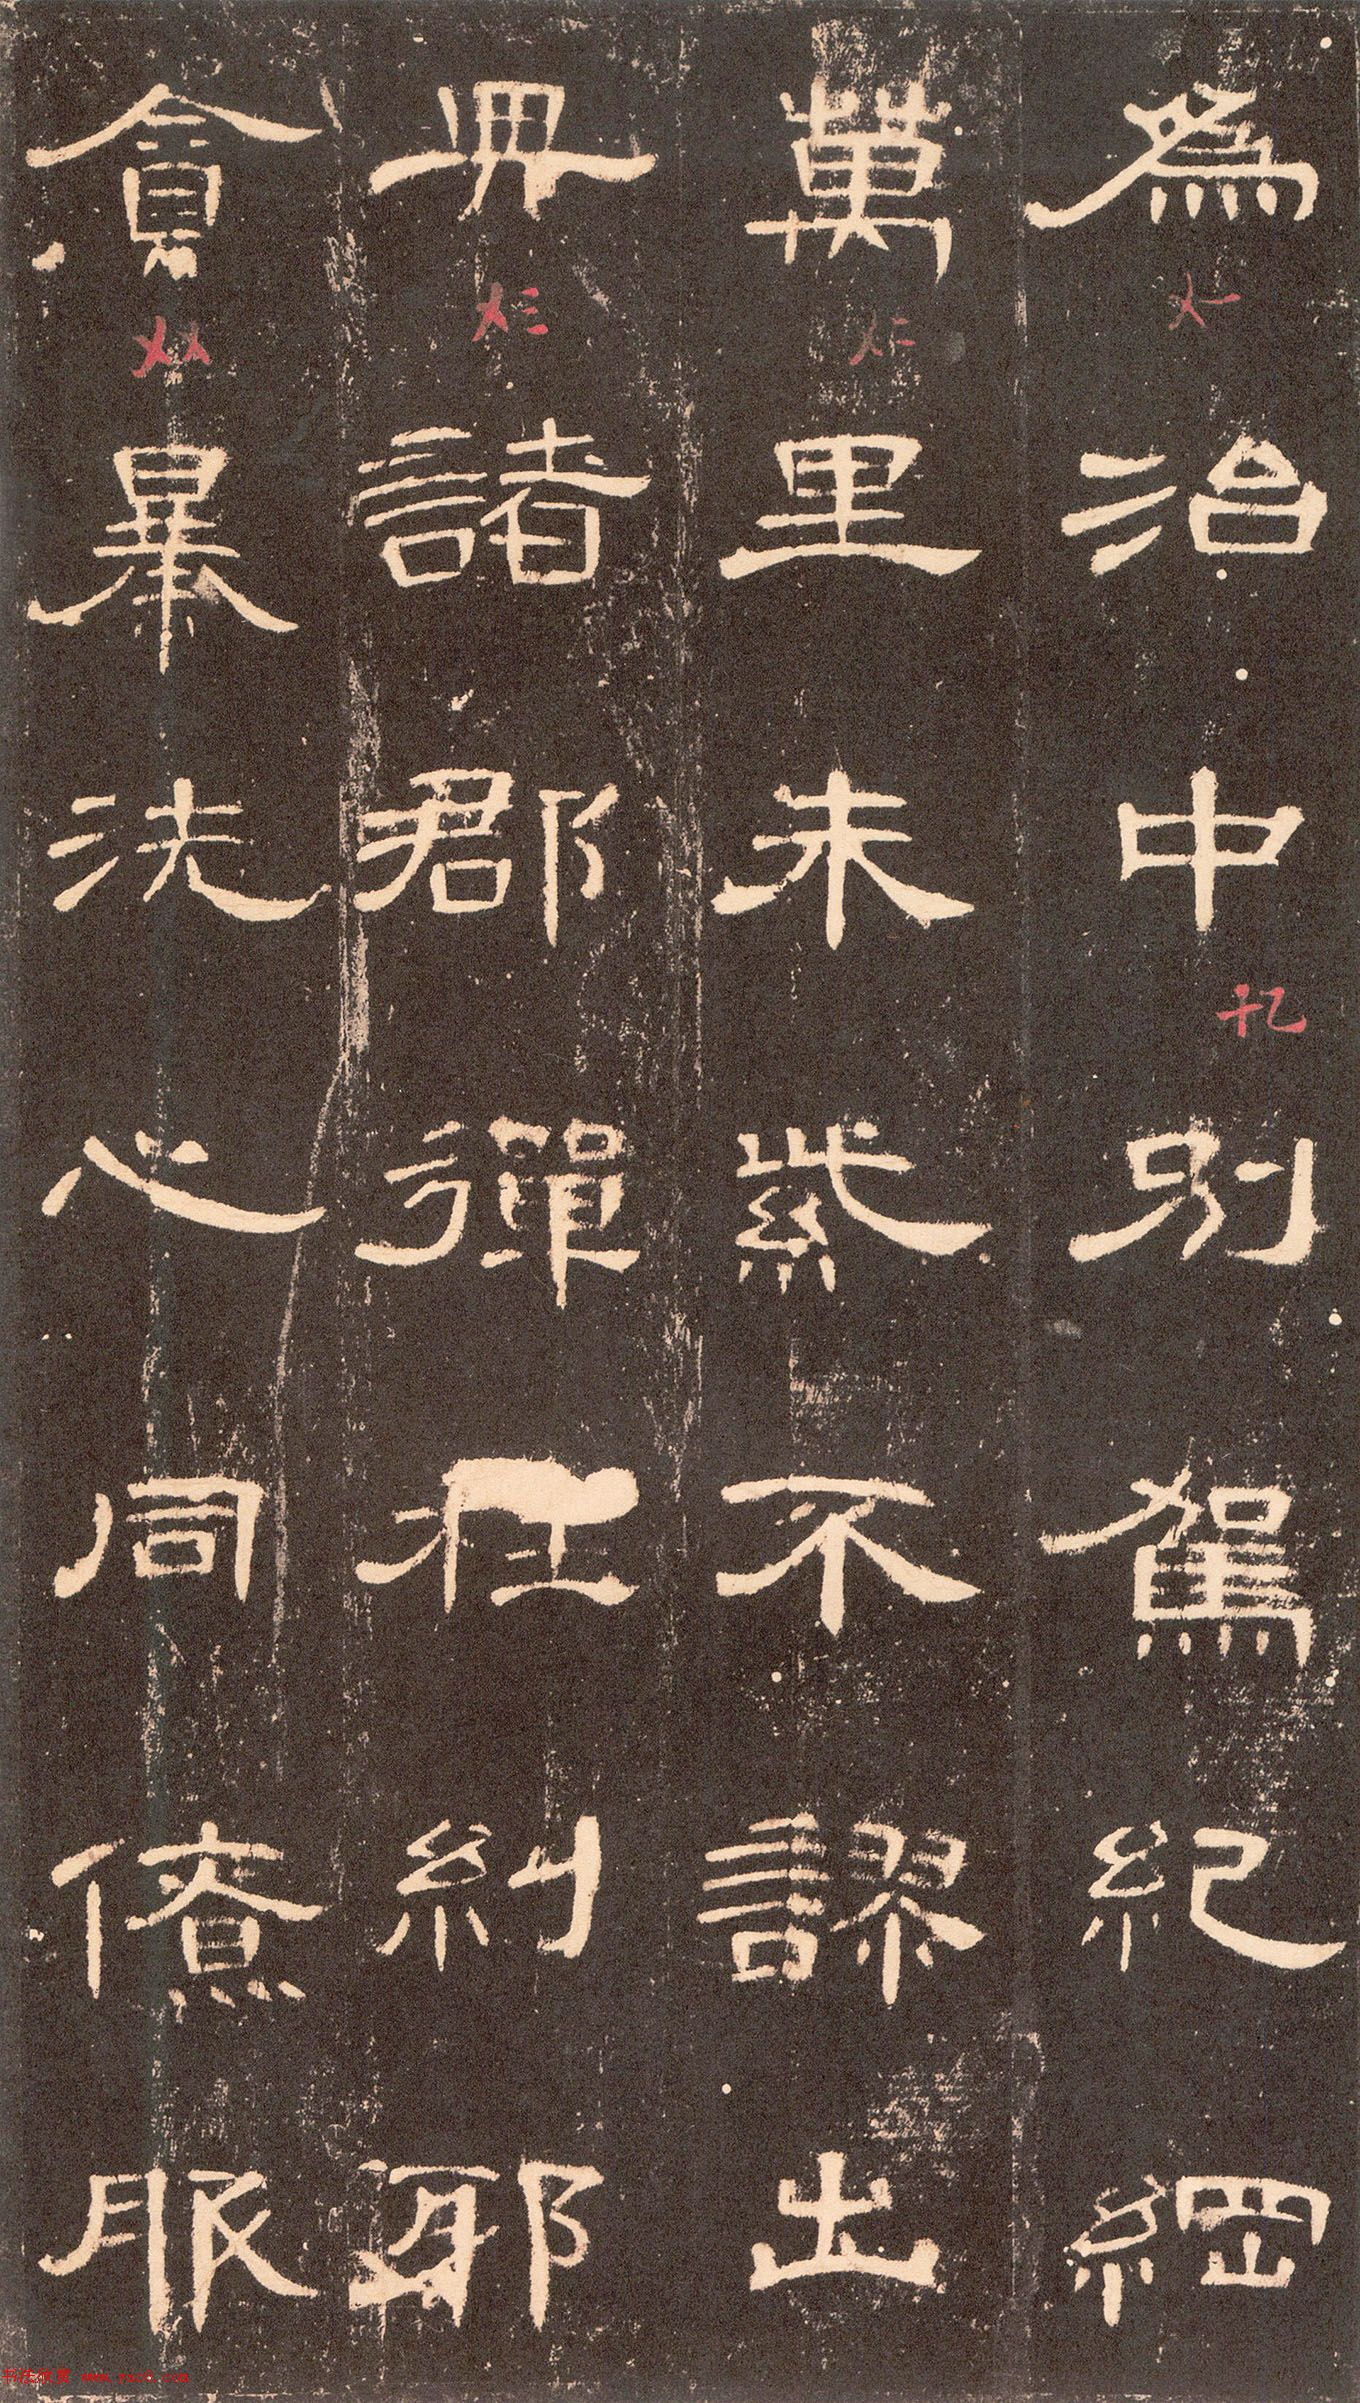 為治中別駕紀綱
萬里朱紫不謬出
典諸郡彈枉糾邪
貪暴洗心同僚服
书法欣赏 www.yac8.com